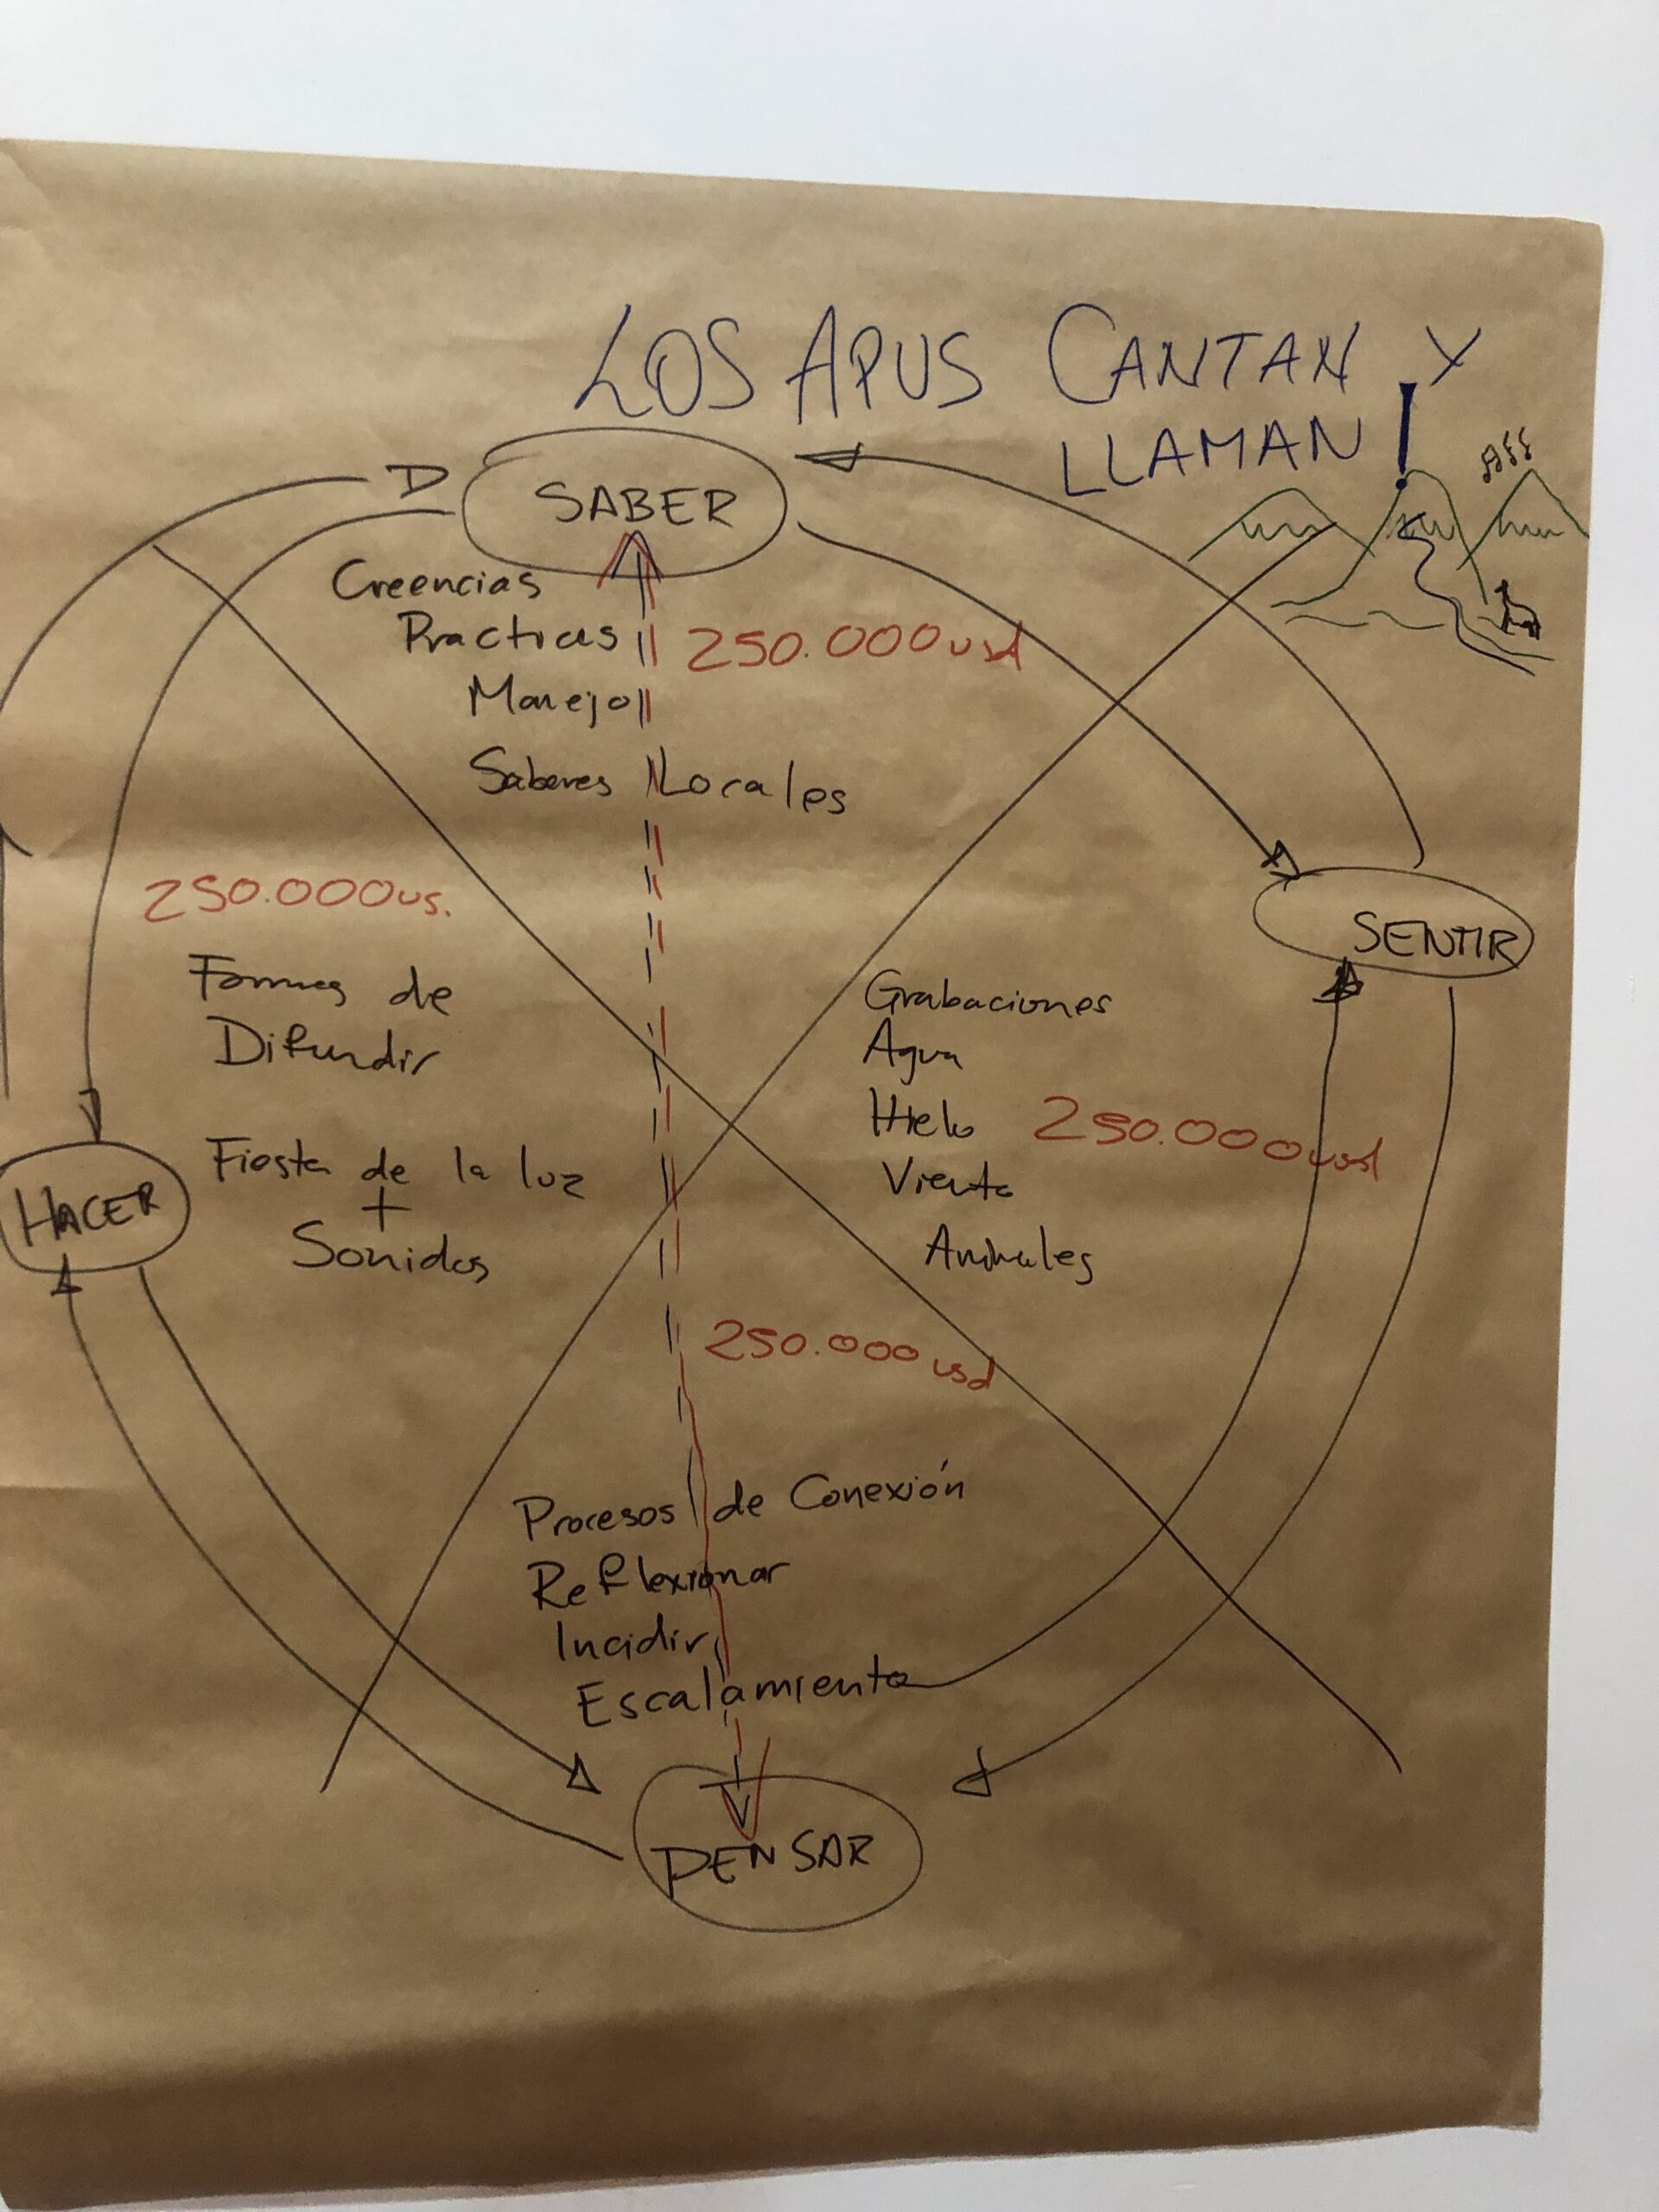 LOS APUS CANTAN Y
LLAMAN
SABER
Creencias
Practicas
250.000 usd
Manejo
Saberes Locales
250.000 us.
Formas de
Difundir
Fiesta de la luz
+
Sonidos
HACER
SENTIR
Grabaciones
Agua
Hielo
250.000 usd
Viento
Animales
250.000 usd
Procesos de Conexión
Reflexionar
Incidir
Escalamiento
PENSAR